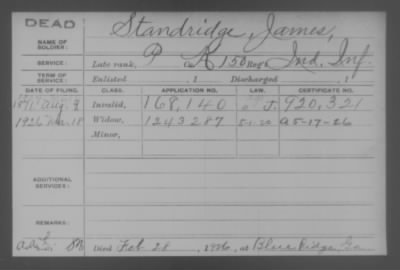 DEAD
NAME OF SOLDIER: Standridge, James,
SERVICE: Late rank, P Co. K 150 Reg't Ind. Inf.
TERM OF SERVICE: Enlisted , 1 Discharged , 1
DATE OF FILING. CLASS. APPLICATION NO. LAW. CERTIFICATE NO.
Aug. 9 Invalid, 168,140 J. 920,321
1926 Mar. 18 Widow, 1243287 5-1-20 A5-17-26
Minor,
ADDITIONAL SERVICES:
REMARKS:
Died Feb 28, 1926, at Blue Ridge Ga